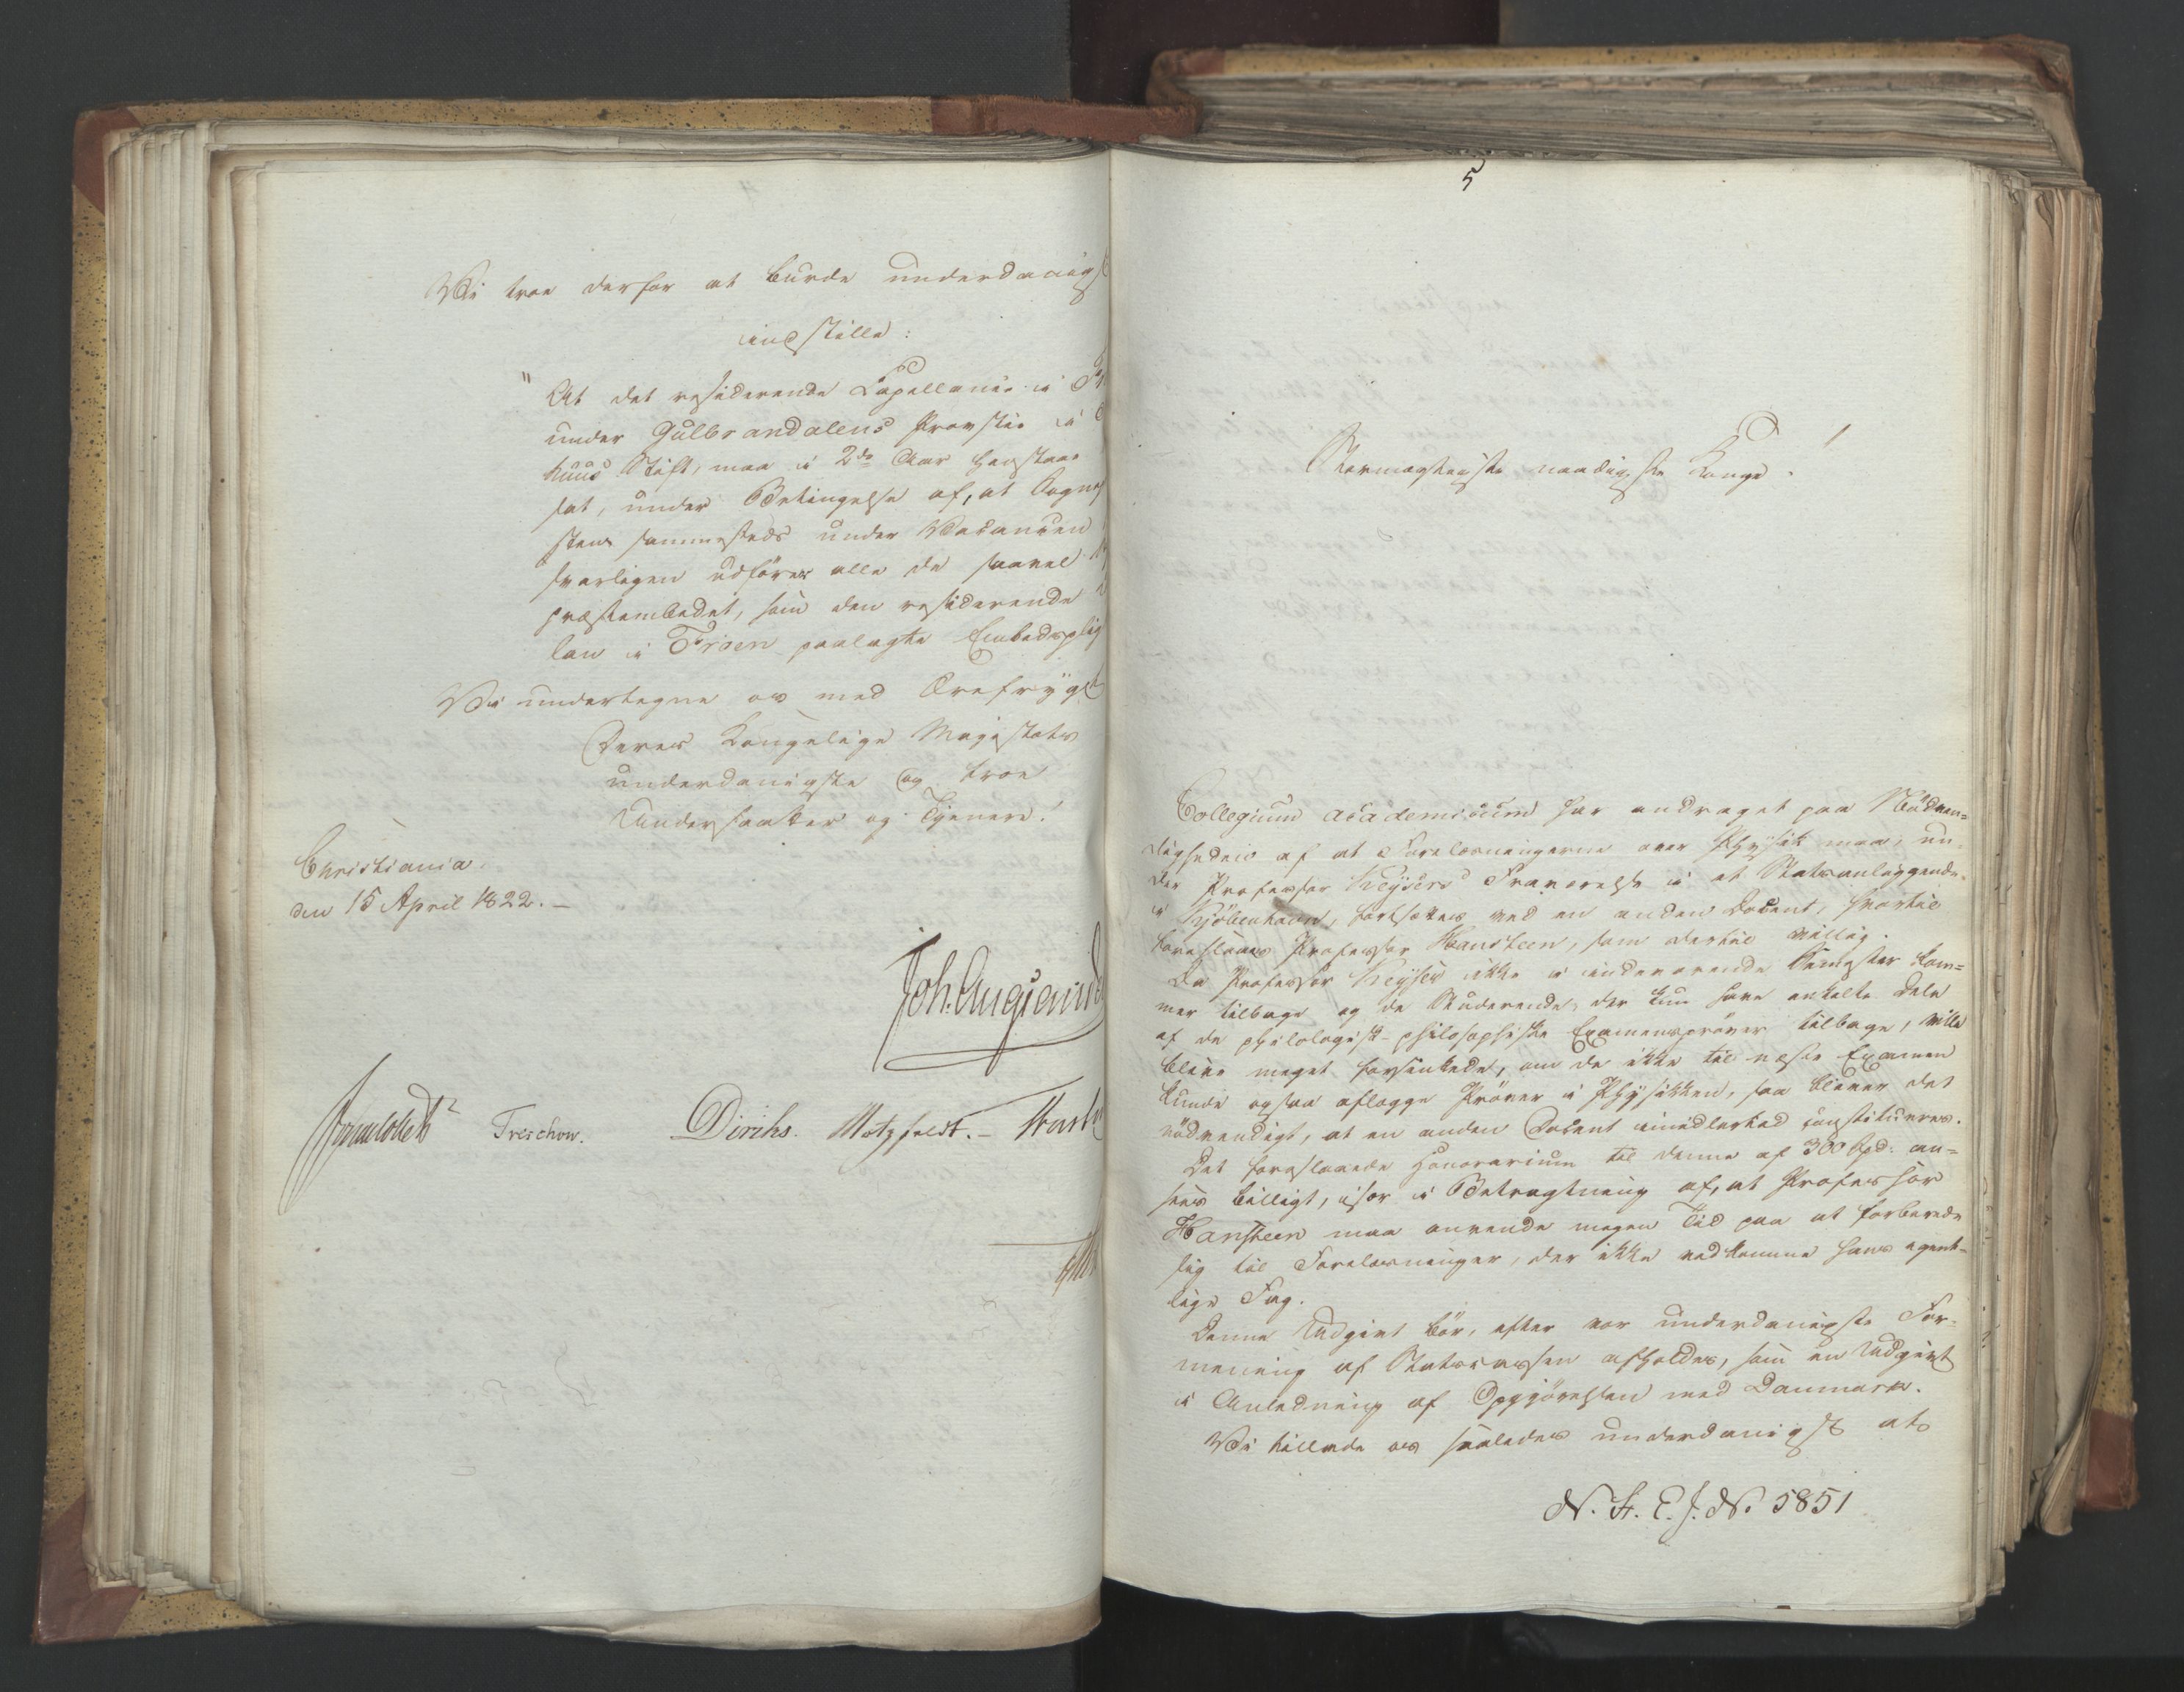 Vi troe derfor at burde underdanigst
indstille:
"At det residerende Capellanie i
under Gulbrandalens Provstie i
huus Stift, maa i 2de Aar henstaae
sat, under Betingelse af, at Sogne
sten sammesteds under Vacancen
svarligen udföres alle de saavel
præstembedet, som den residerende
lan i Fröen paalagte Embedsplig
Vi undertegne os med Ærefrygt
Deres Kongelige Majestæts
underdanigste og troe
Undersaatter og Tjenere!
Christiania,
den 15 April 1822.-
Joh. Aug: Sand
Treschow. Diriks. Motzfeldt.-
5
Stormægtigste, naadigste Konge!
Collegium academicum har andraget paa Nödven=
digheden af at Forelæsningerne over Physik maa, un-
der Professor Keysers Fraværelse i et Statsanliggende
i Kjöbenhavn, fortsættes ved en anden Docent, hvortil
foreslaaes Professor Hansteen, som dertil villig.
Da Professor Keyser ikke i indeværende Semester kom=
mer tilbage og de Studerende, der kun have enkelte Dele
af de philologisk-philosophiske Examensprøver tilbage, ville
blive meget forsinkede, om de ikke til næste Examen
kunde ogsaa aflægge Pröver i Physikken, saa bliver det
nödvendigt, at en anden Docent imidlertid constitueres.
Det foreslaaede Honorarium til denne af 300 Spd: an=
sees billigt, især i Betragtning af, at Professor
Hansteen maa anvende megen Tid paa at forberede
sig til Forelæsninger, der ikke vedkomme hans egent-
lige Fag.
Denne Udgivt bör, efter vor underdanigste For-
mening af Statscassen afholdes, som en Udgivt
i Anledning af Opgjörelsen med Danmark.
Vi tillade os saaledes underdanigst at
N. St. E. J. No. 5851